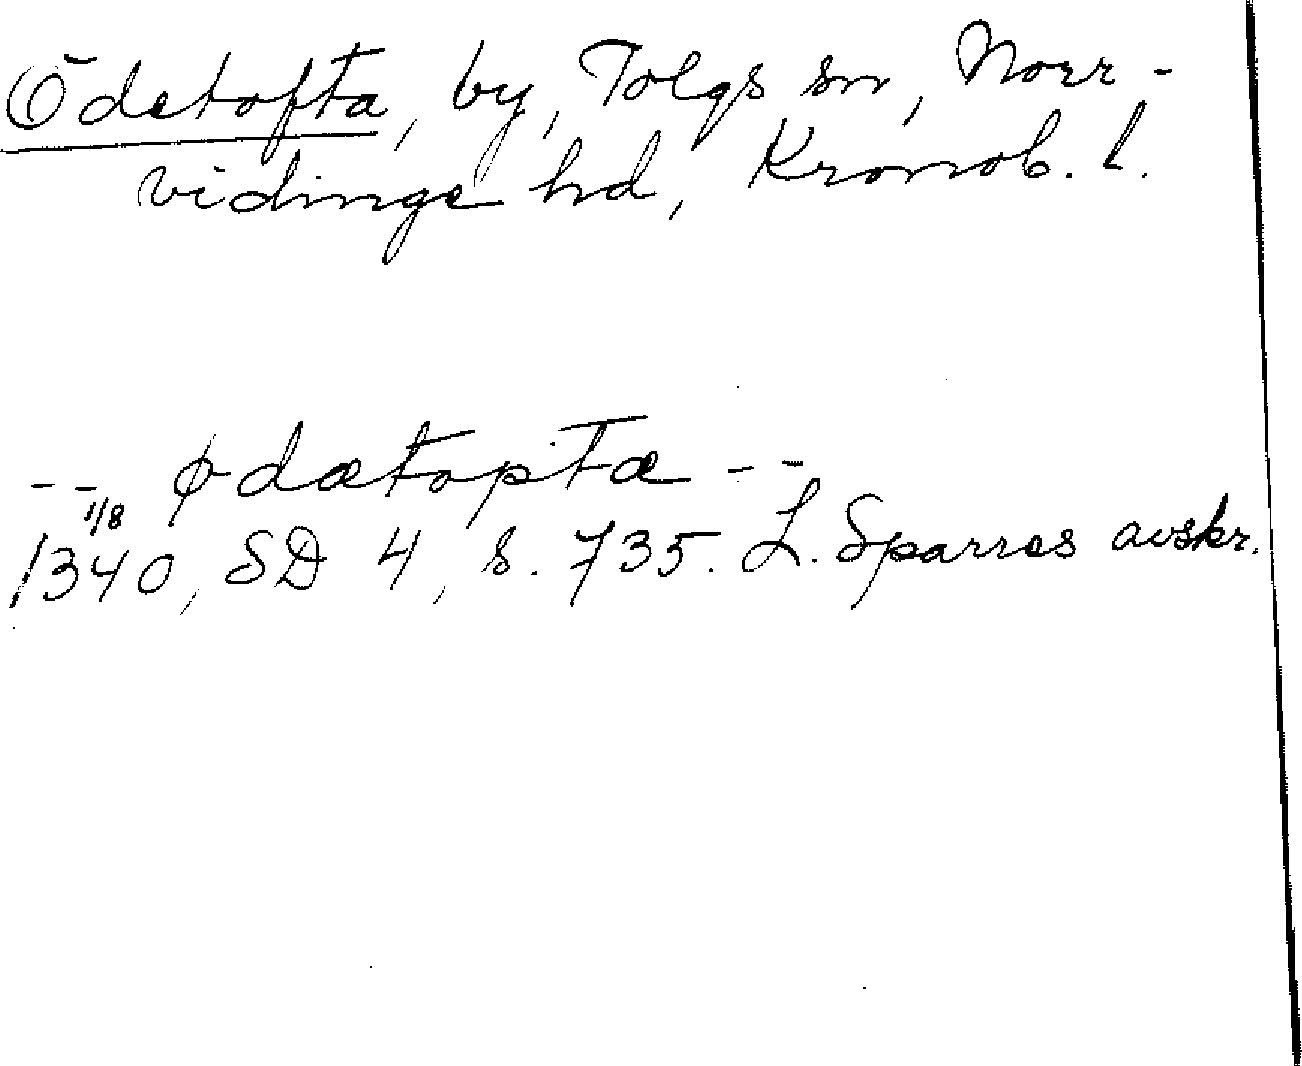 Ödetofta, by, Tolgs sn, Norr-
vidinge hd, Kronob. l.
-- ødætopta --
1340 1/8, SD 4, s. 735. L. Sparres avskr.